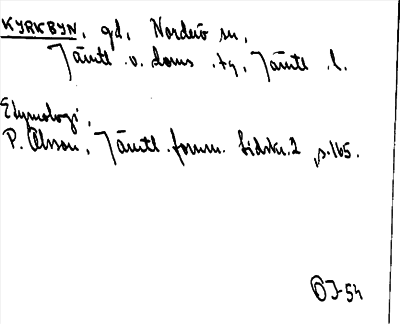 KYRKBYN, gd, Norderö sn,
Jämtl. v. doms. tg, Jämtl. l.
Etymologi,
P. Olsson, Jämtl. fornm. tidskr. 2, s. 165.
OJ-54